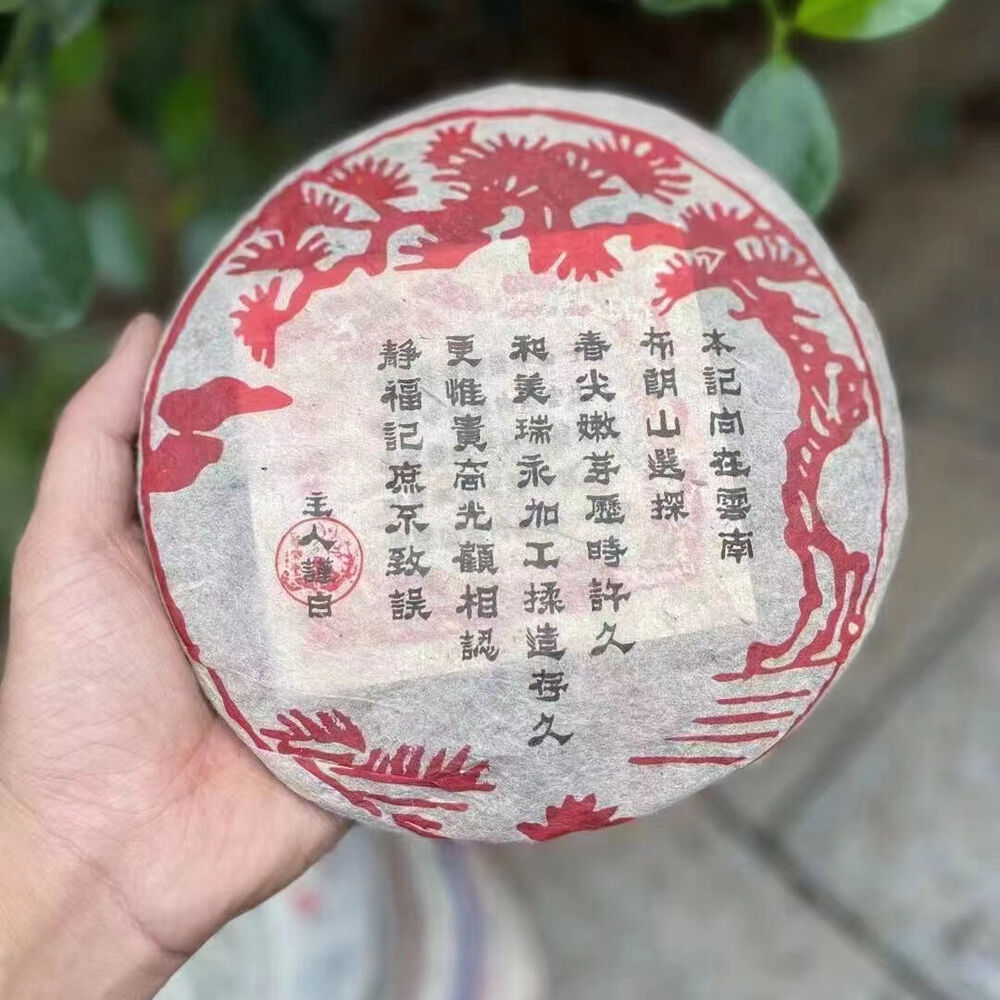 本記向在雲南
布朗山選採
春尖嫩芽歷時許久
和美瑞永加工揉造存久
更惟貴商光顧相認
靜福記庶不致誤
主人謹白